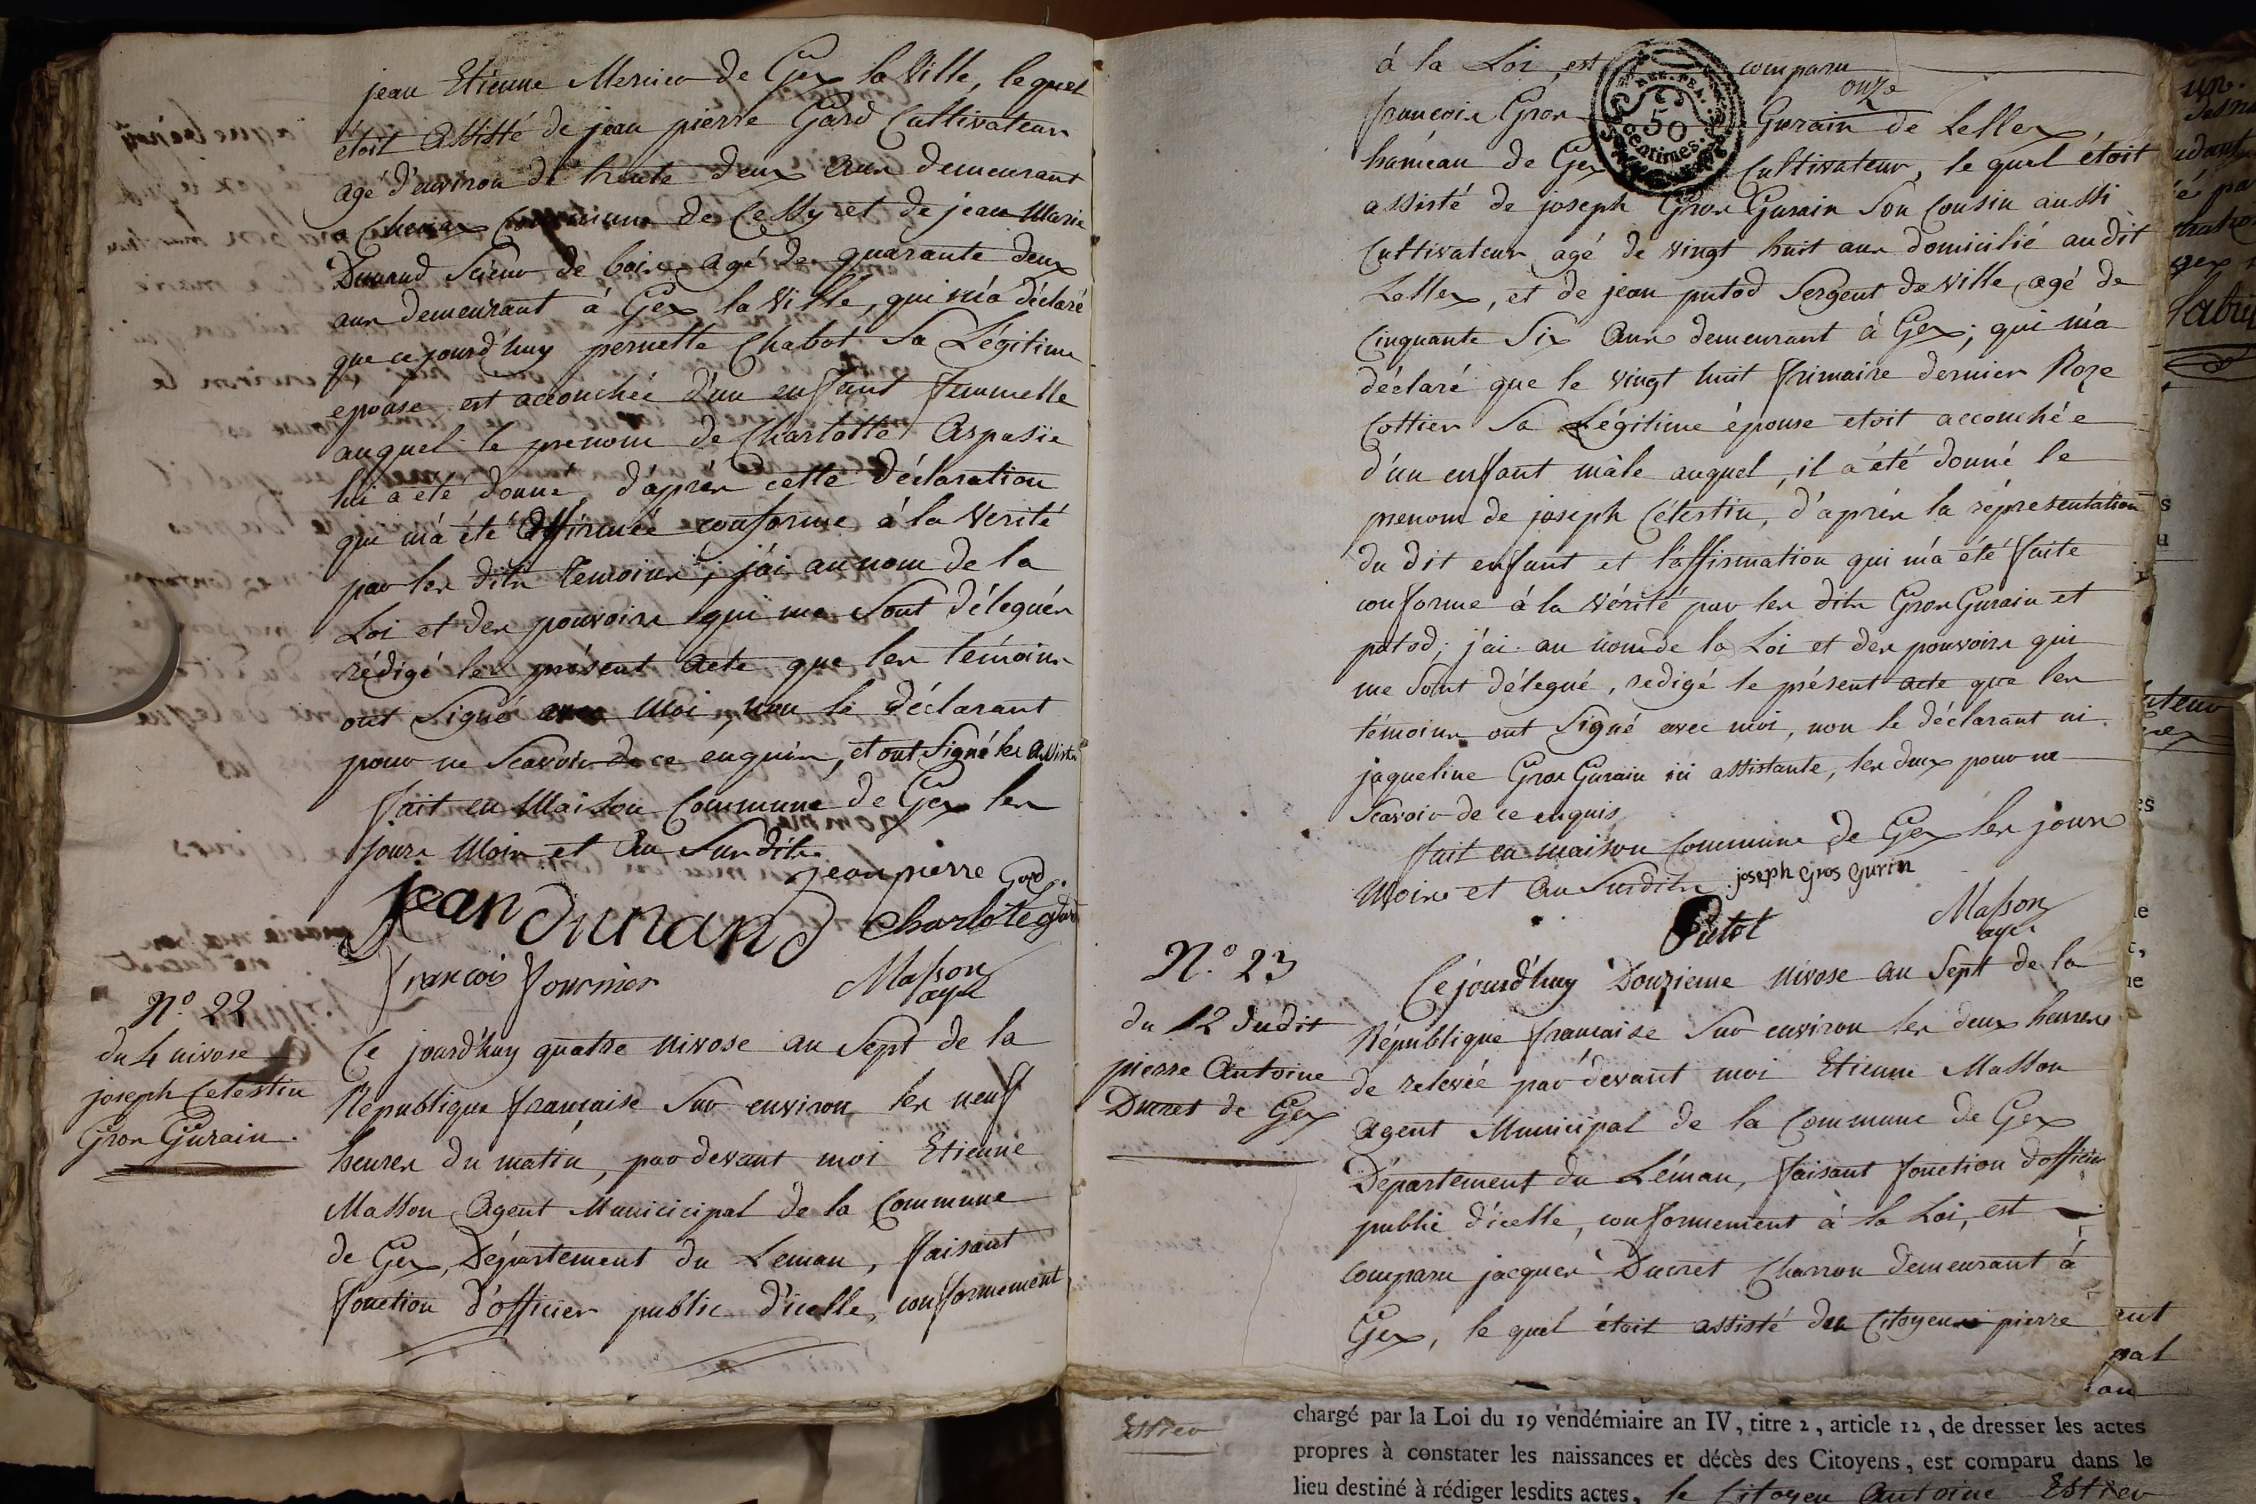 jean Etienne Mernier de Gex la Ville, lequel
étoit assisté de jean pierre Gard Cultivateur
agé d'environ de trente deux ans demeurant
a Commune de Cessy et de jean Marie
Dunand Scieur de bois agé de quarante deux
ans demeurant à Gex la Ville, qui m'a déclaré
que cejourd'huy pernette Chabot Sa Légitime
epouse est accouchée d'un enfant femmelle
auquel le prenom de Charlotte Aspasie
lui a été donné, d'aprés cette déclaration
qui m'a été affirmée conforme à la Verité
par les dits temoins, j'ai au nom de la
Loi et des pouvoirs qui me Sont délegués
rédigé le présent acte que les témoins
ont Signé avec Moi, non le déclarant
pour ne Scavoir de ce enquis, et ont Signé les assist.
fait en Maison Commune de Gex les
jours Mois et An Susdits
jean pierre Gard.
jean dunand charlote gard
francois fournier Masson
agt
N.º 22
du 4 nivose
joseph Celestin
Gros Gurain.
Ce jourd'huy quatre nivose an Sept de la
République francaise Sur environ les neuf
heures du matin, par devant moi Etienne
Masson Agent Municicipal de la Commune
de Gex, Département du Leman, faisant
fonction d'officier public d'icelle, conformement
à la Loi, est comparu
onze
francois Gros Gurain de Lellex
haméau de Gex Cultivateur, le quel étoit
assisté de joseph Gros Gurain Son Cousin aussi
Cultivateur agé de vingt huit ans domicilié audit
Lellex, et de jean putod Sergent de Ville agé de
Cinquante Six Ans demeurant à Gex; qui m'a
déclaré que le vingt huit frimaire dernier Roze
Cottier Sa Légitime épouse etoit accouchée
d'un enfant mâle auquel, il a été donné le
prenom de joseph Célestin, d'aprés la réprésentation
du dit enfant et l'affirmation qui m'a été faite
conforme à la vérité par les dits Gros Gurain et
putod; j'ai au nom de la Loi et des pouvoirs qui
me Sont délegué, redigé le présent acte que les
témoins ont Signé avec moi, non le déclarant ni
jaqueline Gros Gurain ici assistante, les deux pour ne
Scavoir de ce enquis
fait en maison Commune de Gex les jours
Mois et An Susdits joseph Gros Gurin
Putot Masson
agt
REP. FRA.
50
centimes.
N.º 23
du 12 dudit
pierre Antoine
Ducret de Gex
Cejourd'huy Douzieme nivose an Sept de la
République francaise Sur environ les deux heures
de relevée par devant moi Etienne Masson
Agent Municipal de la Commune de Gex
Département du Léman, faisant fonction d'officier
public d'icelle, conformement à la Loi, est
Comparu jacques Ducret Charron demeurant à
Gex, le quel étoit assisté du Citoyen pierre
Estier
chargé par la Loi du 19 vendémiaire an IV, titre 2, article 12, de dresser les actes
propres à constater les naissances et décès des Citoyens, est comparu dans le
lieu destiné à rédiger lesdits actes, le Citoyen Antoine Estier